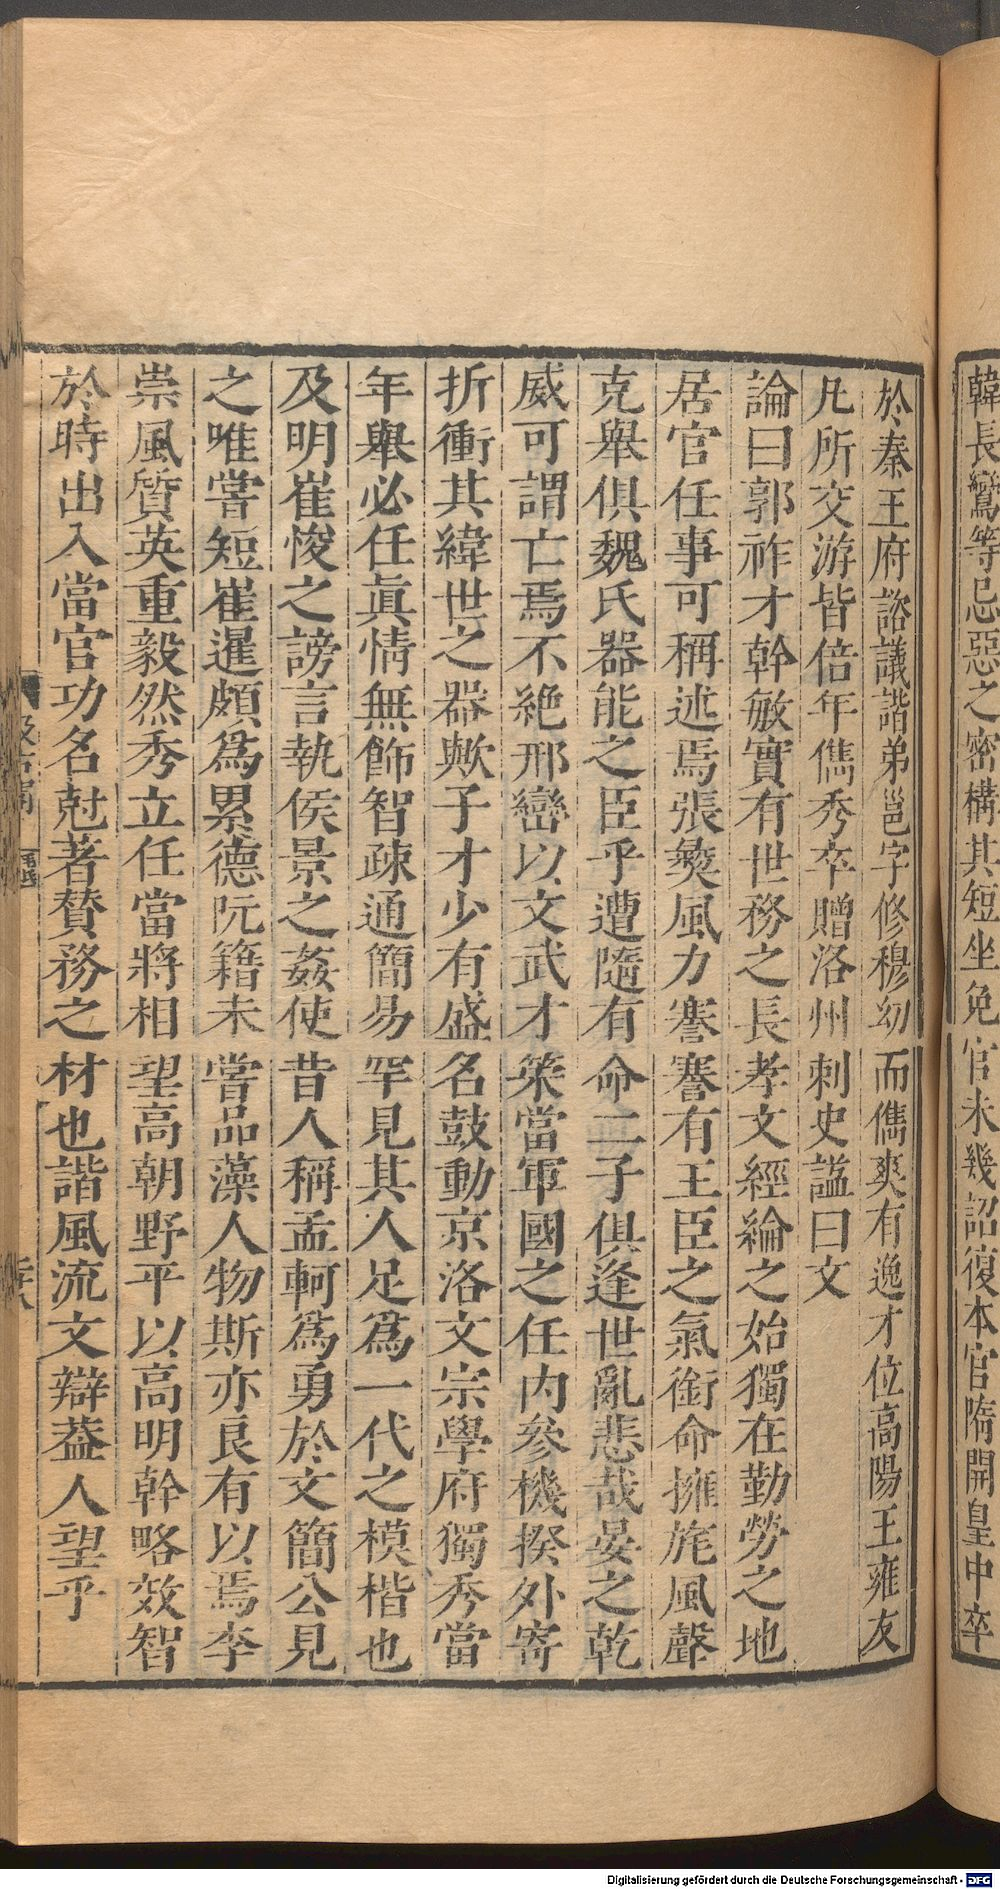 韓長鸞等忌惡之密構其短坐免官未幾詔復本官隋開皇中卒
於秦王府諮議諧弟邕字修穆幼而儁爽有逸才位高陽王雍友
凡所交游皆倍年儁秀卒贈洛州刺史謚曰文
論曰郭祚才幹敏實有世務之長孝文經綸之始獨在勤勞之地
居官任事可稱述焉張彝風力謇謇有王臣之氣銜命擁旄風聲
克舉俱魏氏器能之臣乎遭隨有命二子俱逢世亂悲哉晏之乾
威可謂亡焉不絶邢巒以文武才策當軍國之任内參機揆外寄
折衝其緯世之器歟子才少有盛名鼓動京洛文宗學府獨秀當
年舉必任眞情無飾智疎通簡易罕見其人足爲一代之模楷也
及明崔悛之謗言執侯景之姦使昔人稱孟軻爲勇於文簡公見
之唯嘗短崔暹頗爲累德阮籍未嘗品藻人物斯亦良有以焉李
崇風質英重毅然秀立任當將相望高朝野平以高明幹略效智
於時出入當官功名尅著賛務之材也諧風流文辯葢人望乎
Digitalisierung gefördert durch die Deutsche Forschungsgemeinschaft - DFG